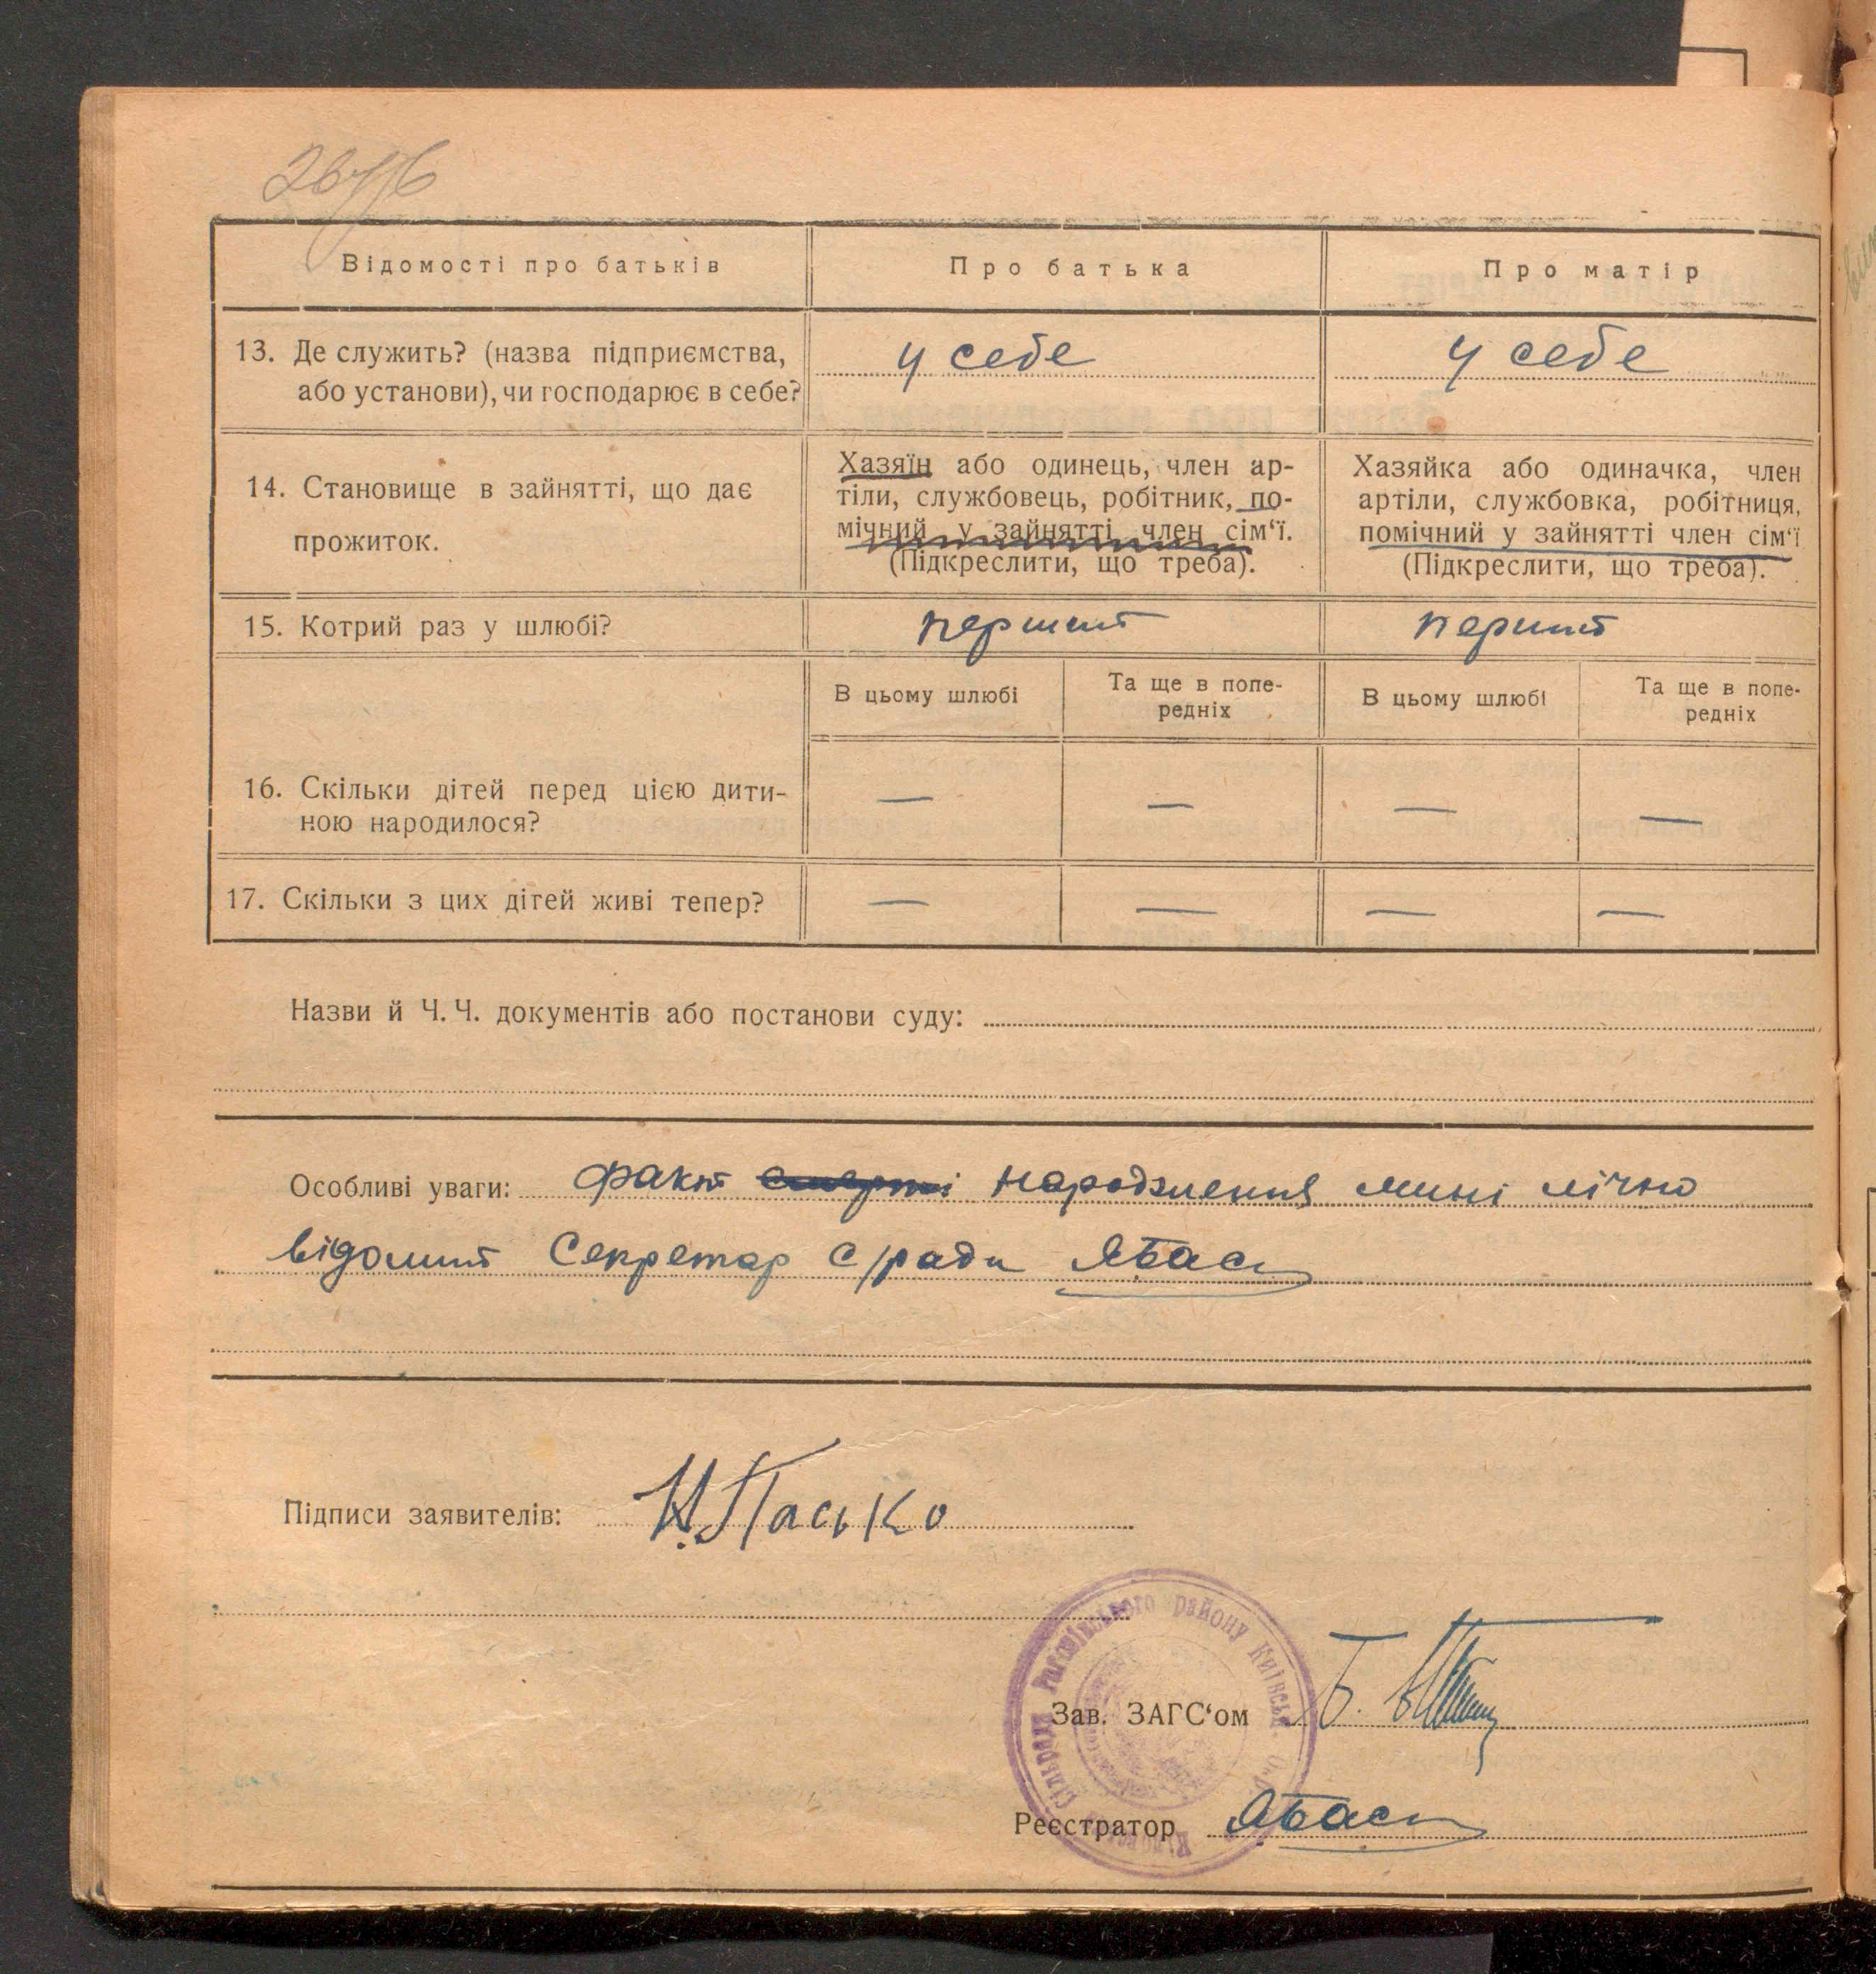 Відомості про батьків
Про батька
Про матір
13. Де служить? (назва підприємства,
або установи), чи господарює в себе?
у себе
у себе
14. Становище в зайнятті, що дає
прожиток.
Хазяїн або одинець, член ар-
тіли, службовець, робітник, по-
мічний у зайнятті член сім‘ї.
(Підкреслити, що треба).
Хазяйка або одиначка, член
артіли, службовка, робітниця,
помічний у зайнятті член сім‘ї
(Підкреслити, що треба).
15. Котрий раз у шлюбі?
перший
перший
В цьому шлюбі
Та ще в попе-
редніх
В цьому шлюбі
Та ще в попе-
редніх
16. Скільки дітей перед цією дити-
ною народилося?
— — — —
17. Скільки з цих дітей живі тепер?
— — — —
Назви й Ч. Ч. документів або постанови суду:
Особливі уваги: факт смерті народження мині лічно
відомий Секретар с/ради
Підписи заявителів: Н. Пасько
Сільрада району Київськ.
Зав. ЗАГС‘ом
Реєстратор